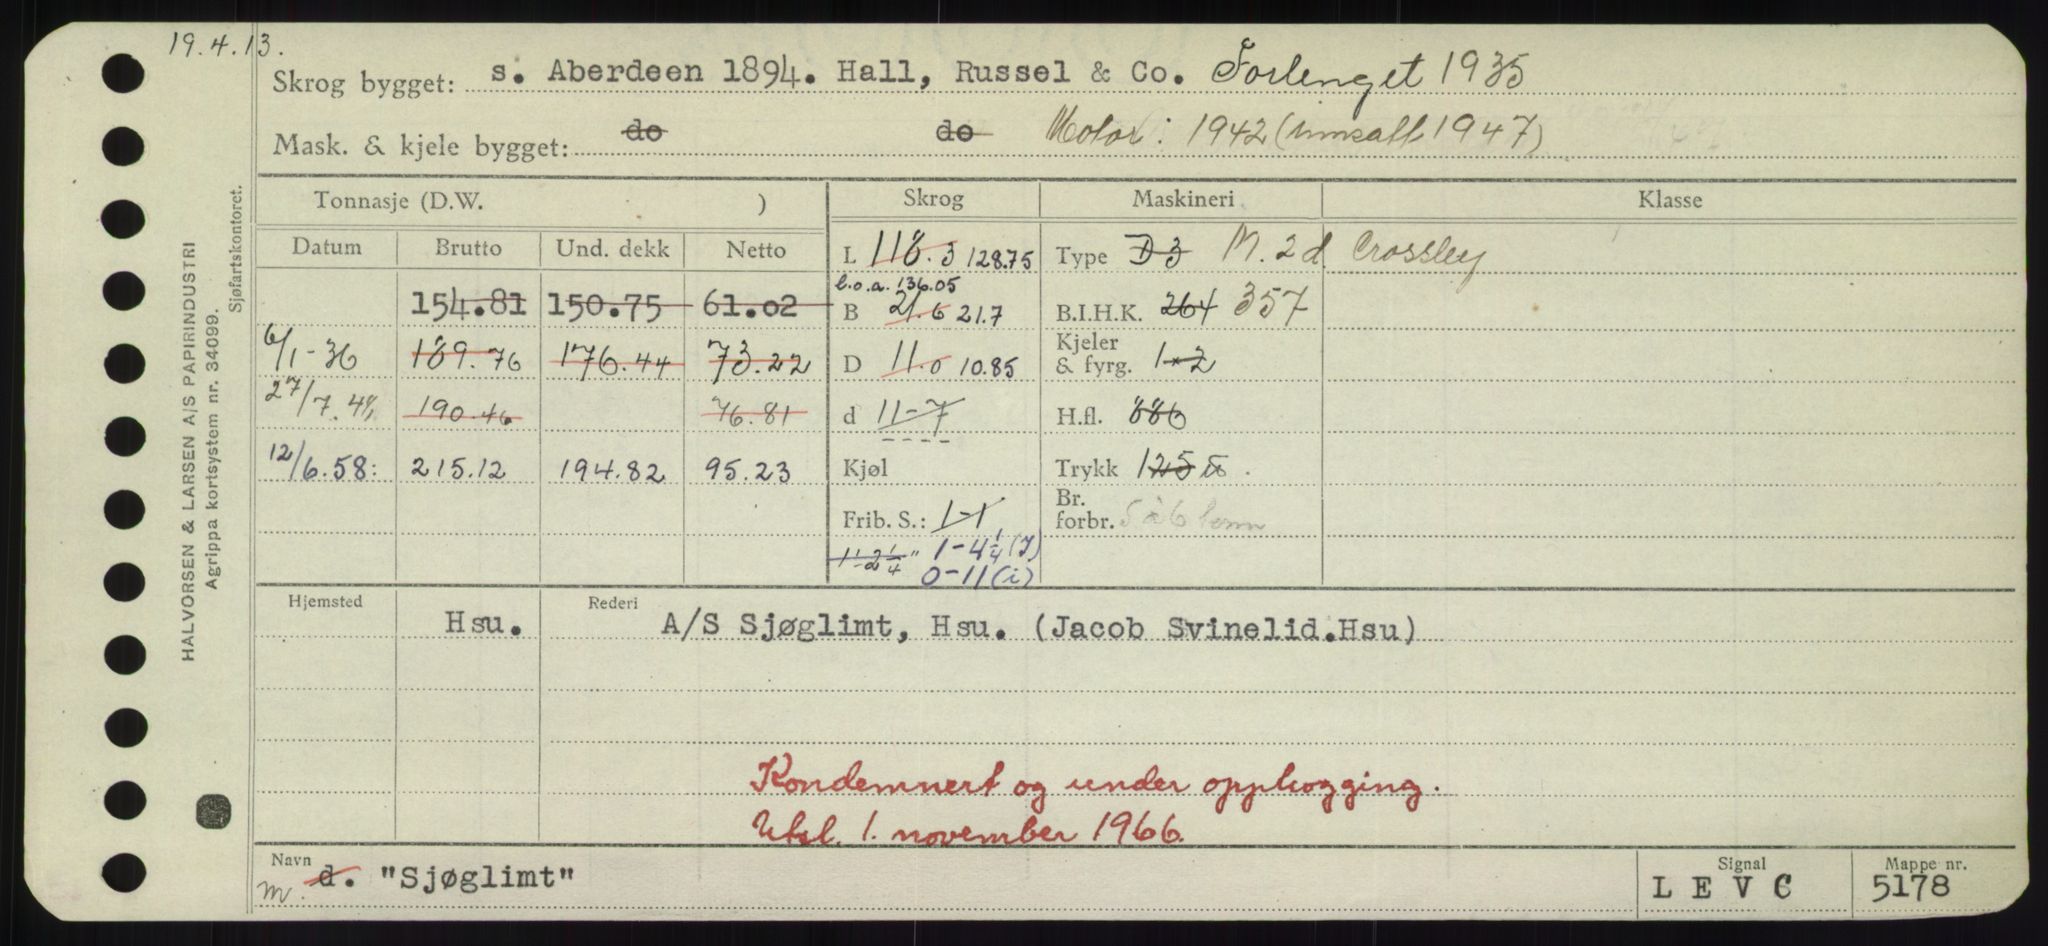 19.4.13.
Skrog bygget: s. Aberdeen 1894. Hall, Russel & Co. Forlenget 1935
Mask. & kjele bygget: do do Motor: 1942 (innsatt 1947)
Tonnasje (D.W. ) Skrog Maskineri Klasse
Datum Brutto Und. dekk Netto L 118.3 128.75 Type D3 M. 2 d. Crossley
l.o.a. 136.05
154.81 150.75 61.02 B 21.6 21.7 B.I.H.K. 264 357
6/1-36 189.76 176.44 73.22 D 11.0 10.85 Kjeler & fyrg. 1-2
27/7.48, 190.46 76.81 d 11-7 H.fl. 886
12/6.58: 215.12 194.82 95.23 Kjøl Trykk 125
Frib. S.: 1-1 Br. forbr. 5 à 6 tonn
1-2 1/4 " 1-4 1/4 (J)
0-11 (i)
Hjemsted Hsu. Rederi A/S Sjøglimt, Hsu. (Jacob Svinelid.Hsu)
Kondemnert og under opphogging.
Utsl. 1. november 1966.
Navn m. d. "Sjøglimt" Signal L E V C Mappe nr. 5178
HALVORSEN & LARSEN A/S PAPIRINDUSTRI
Agrippa kortsystem nr. 34099.
Sjøfartskontoret.